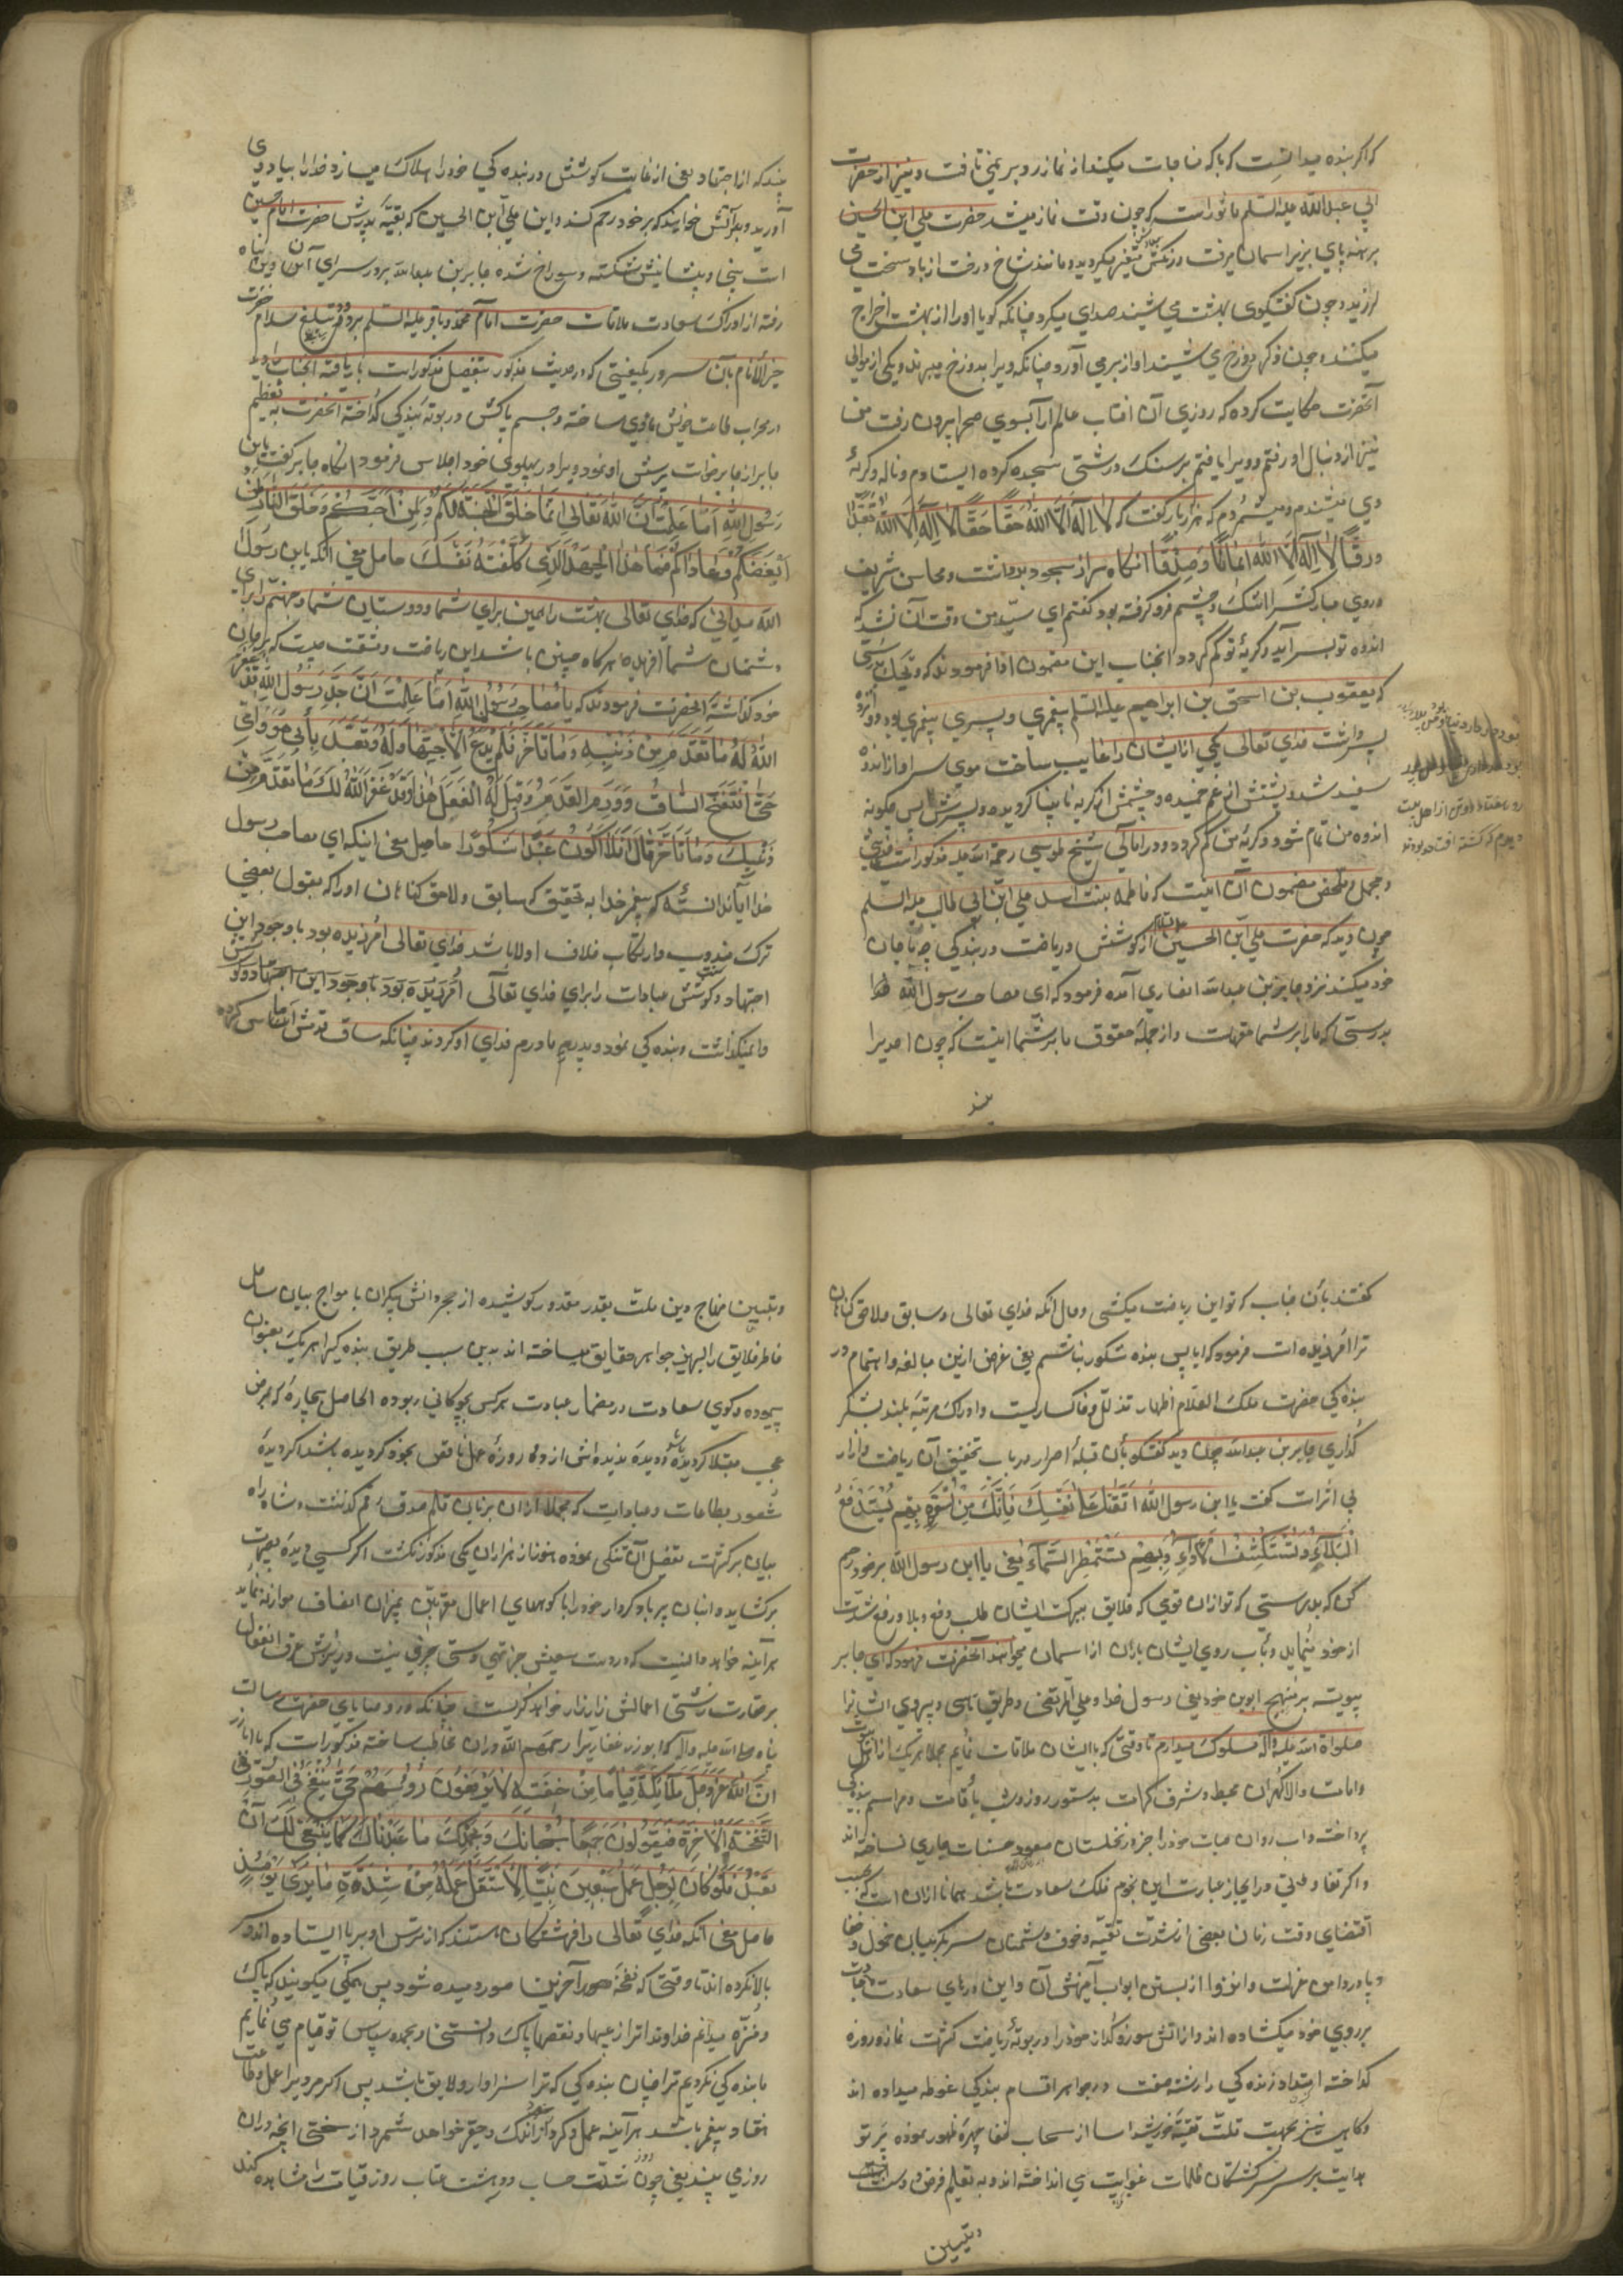 که اگر بنده میدانست که با که مناجات میکند از نماز رو بر نمی تافت و نیز از حضرت
ابی عبد الله علیه السلم ماثور است که چون وقت نماز میشد حضرت علی ابن الحسین
برهنه پای بزیر اسمان میرفت و رنکش متغیر میکردید و مانند شاخ درخت از باد سخت می
لرزید و چون کفتکوی بهشت می شنید صدای میکرد چنانکه کویا او را از بهشت اخراج
میکنند و چون ذکر دوزخ می شنید اواز بر می آورد چنانکه ویرا بدوزخ میبرند و یکی از موالی
آنحضرت حکایت کرده که روزی آن افتاب عالم آرا بسوی صحرا بیرون رفت من
نیز از دنبال او رفتم و ویرا یافتم بر سنک درشتی سجده کرده ایستادم و ناله و کریهٔ
وی میشندم و میشمردم که هزار بار کفت که لا اله الا الله حقا حقا لا اله الا الله تعبدا
ورقا لا اله الا الله ایمانا وصدقا انکاه سر از سجود برداشت و محاسن شریف
و روی مبارکش را اشک چشم فرو کرفته بود کفتم ای سید من وقت آن نشد که
اندوه تو بسر آید و کریهٔ تو کم کردد انجناب این مضمون ادا فرمودند که ویحک بدرستی
که یعقوب بن اسحق بن ابراهیم علیه السلم پیغمبری و پسری پیغمبری بود و دوازده
پسر داشت خدای تعالی یکی از ایشان را غایب ساخت موی سر او از اندوه
سفید شد و پشتش از غم خمیده و چشمش از کریه نابینا کردیده و پسرش پس چکونه
اندوه من تمام شود و کریهٔ من کم کردد و در امالی شیخ طوسی رحمة الله علیه مذکور است
و مجمل و ملخص مضمون آن اینست که فاطمه بنت اسد علی ابن ابی طالب علیه السلم
چون دید که حضرت علی ابن الحسین از کوشش و ریاضت در بندکی چه با جان
خود میکند نزد جابر بن عبد الله انصاری آمده فرمود که ای صاحب رسول الله
بدرستی که ما را بر شما حقهاست و از جملهٔ حقوق ما بر شما اینست که چون احدیرا
بیند
بیند که از اجتهاد یعنی از غایت کوشش در بندکی خود را هلاک میسازد خدا را بیاد وی
آورید و بر آنش خوانید که بر خود رحم کند و این علی ابن الحسین که بقیهٔ پدرش حضرت امام حسین
است بینی و پیشانیش شکسته و سوراخ شده جابر بن عبد الله بر در سرای آن دین پناه
رفته از ادراک سعادت ملاقات حضرت امام محمد باقر علیه السلم و تبلیغ سلام حضرت
خیر الانام بآن سرور بکیفیتی که در حدیث مذکور بتفصیل مذکور است بار یافته انجناب را
در محراب طاعت خویش ماوی ساخته و جسم پاکش در بوتهٔ بندکی کداخته انحضرت به تعظیم
جابر از جا برخواست پرسش او نمود ویرا در پهلوی خود اجلاس فرمود انکاه جابر کفت یابن
رسول الله اما علمت ان الله تعالی انما خلق الجنة لکم ولمن احبکم وخلق النار لمن
ابغضکم وعاداکم فما هذا الجهد الذی کلفته نفسک حاصل معنی انکه یابن رسول
الله میدانی که خدای تعالی بهشت را همین برای شما و دوستان شما و جهنم را برای
دشمنان شما افریده هرکاه چنین باشد این ریاضت و مشقت چیست که بر جان
خود کذاشتهٔ انحضرت فرمودند که یا صاحب رسول الله اما علمت ان جدی رسول الله قد غفر
الله له ما تقدم من ذنبه وما تاخر فلم یدع الاجتهاد له وتعبد بابی هو وامی
حتی انتفخ الساق وورم القدم وقیل له اتفعل هذا وقد غفر الله لک ما تقدم من
ذنبک وما تاخر قال افلا اکون عبدا شکورا حاصل معنی اینکه ای صاحب رسول
خدا آیا ندانستهٔ که پیغمبر خدا به تحقیق که سابق و لاحق کناهان او را که بقول بعضی
ترک مندوب و ارتکاب خلاف اولا باشد خدای تعالی آمرزیده بود با وجود این
اجتهاد و کوشش عبادات را برای خدای تعالی
وا نمیکذاشت و بندکی نمود و پدر و مادرم فدای او کردند چنانکه ساق قدمش
کفتند بآن جناب که تو این ریاضت میکشی و حال انکه خدای تعالی و سابق و لاحق کناهان
ترا آمرزیده است فرمود که ایا پس بنده شکور نباشم یعنی غرض ازین مبالغه و اهتمام در
بندکی حضرت ملک العلام اظهار تذلل و خاکساریست و ادراک مرتبهٔ بلند شکر
کذاری جابر بن عبد الله چون دید کفتکو بآن قبلهٔ احرار در باب تخفیف آن ریاضت و ازار
بی اثر است کفت یا ابن رسول الله اتقتل علی نفسک فانک من اسرة بهم یستدفع
البلاء وتستکشف اللاواء وبهم تستمطر السماء یعنی یا ابن رسول الله بر خود رحم
کن که بدرستی که تو از ان قومی که خلایق ببرکت ایشان طلب دفع بلا و رفع شدت
از خود مینمایند و بآب روی ایشان باران از اسمان میخواهند آنحضرت فرمود که ای جابر
پیوسته بر منهج ابوین خود یعنی رسول خدا و علی المرتضی و طریق تاسی و پیروی ایشانرا
صلواة الله علیه و آله مسلوک میدارم تا وقتی که با ایشان ملاقات نمایم مجملا هر یک از
و امامت والا کهران محیط و شرف کرامت بدستور روز و شب باقامت و مراسم بندکی
پرداخته و اب روان حیات خود را جز در نخلستان حسنات جاری نساخته اند
و اکر تفاوتی در ایجاز عبارت این نجوم فلک سعادت باشد همانا از ان است که بحسب
اقتضای وقت زمان بعضی از شدت تقیه و خوف دشمنان سر بکریبان خمول و خفا
و پا در دامن عزلت و انزوا از بستن ابواب آمیزش آن و این درهای سعادت
بر روی خود میکشاده اند و از اتش سوز و کداز خود را در بوتهٔ ریاضت کثرت نماز و روزه
کداخته امتداد زنده کی را رشته صفت در جواهر اقسام بندکی غوطه میداده اند
و کاهی نیز بجهت قلت تقیه خورشید اسا از سحاب خفا چهرهٔ ظهور نموده پرتو
هدایت بر سر سرکشتکان ظلمات غوایت می انداخته اند و به تعلیم فرض و سنت
و تبیین
و تبیین منهاج دین ملت بقدر مقدور کوشیده از بحر دانش بیکران با مواج بیان ساحل
خاطر خلایق را لبریز جواهر حقایق میساخته اند بدین سبب طریق بنده کیرا هر یک بعنوان
پیموده و کوی سعادت در مضمار عبادت هر کس بچوکانی ربوده الحاصل بیچاره که بمرض
عجب مبتلا کردیده و دیدهٔ دیده اش از ده روزه عمل ناقص بخود کردیده باشد اکر دیدهٔ
شعور بطاعات و عباداتی که مجملا از ان بر زبان قلم صدق رقم کذشت و شاه راه
بیان بر کثرت تفصیل آن تنکی نموده هنوز از هزاران یکی مذکور نکشت اکر کسی دیدهٔ بصیرت
بر کشاید و انبان پر باد کردار خود را با کوههای اعمال مقربین بمیزان انصاف موازنه نماید
هر آینه خواهد دانست که در دست سعیش جز تهی دستی چیزی نیست و ریزش عرق انفعال
بر حقارت زشتی اعمالش زار زار خواهد کریست چنانکه در وصایای حضرت رسالت
پناه صلی الله علیه و آله که ابو ذر غفاریرا رحمه الله در ان مخاطب ساخته مذکور است که یا ابا ذر
ان الله عز وجل ملائکة قیاما من خیفته لا یرفعون رؤسهم حتی ینفخ فی الصور
النفخة الاخرة فیقولون جمیعا سبحانک وبحمدک ما عبدناک کما ینبغی لک ان
تعبد فلو کان لرجل عمل سبعین نبیا لاستقل عمله من شدة ما یری یومئذ
حاصل معنی آنکه خدای تعالی را فرشتکان هستند که از ترس او بر پا ایستاده اند و سر
بالا نکرده اند تا وقتی که نفخهٔ صور آخرین دمیده شود پس همکی میکویند که پاک
و منزه میدانم خداوندا ترا از عیبها و نقصها پاک دانستنی و بحمد و سپاس تو قیام می نمایم
ما بندکی نکردیم ترا چنان بنده کی که ترا سزاوار و لایق باشد پس اکر مردیرا عمل و طاعت
هفتاد پیغمبر باشد هر آینه عمل و کردار اندک و حقیر خواهد شمرد از سختی انچه در ان
روز می بیند یعنی چون شدت حساب و دهشت عتاب روز قیامت را مشاهده کند